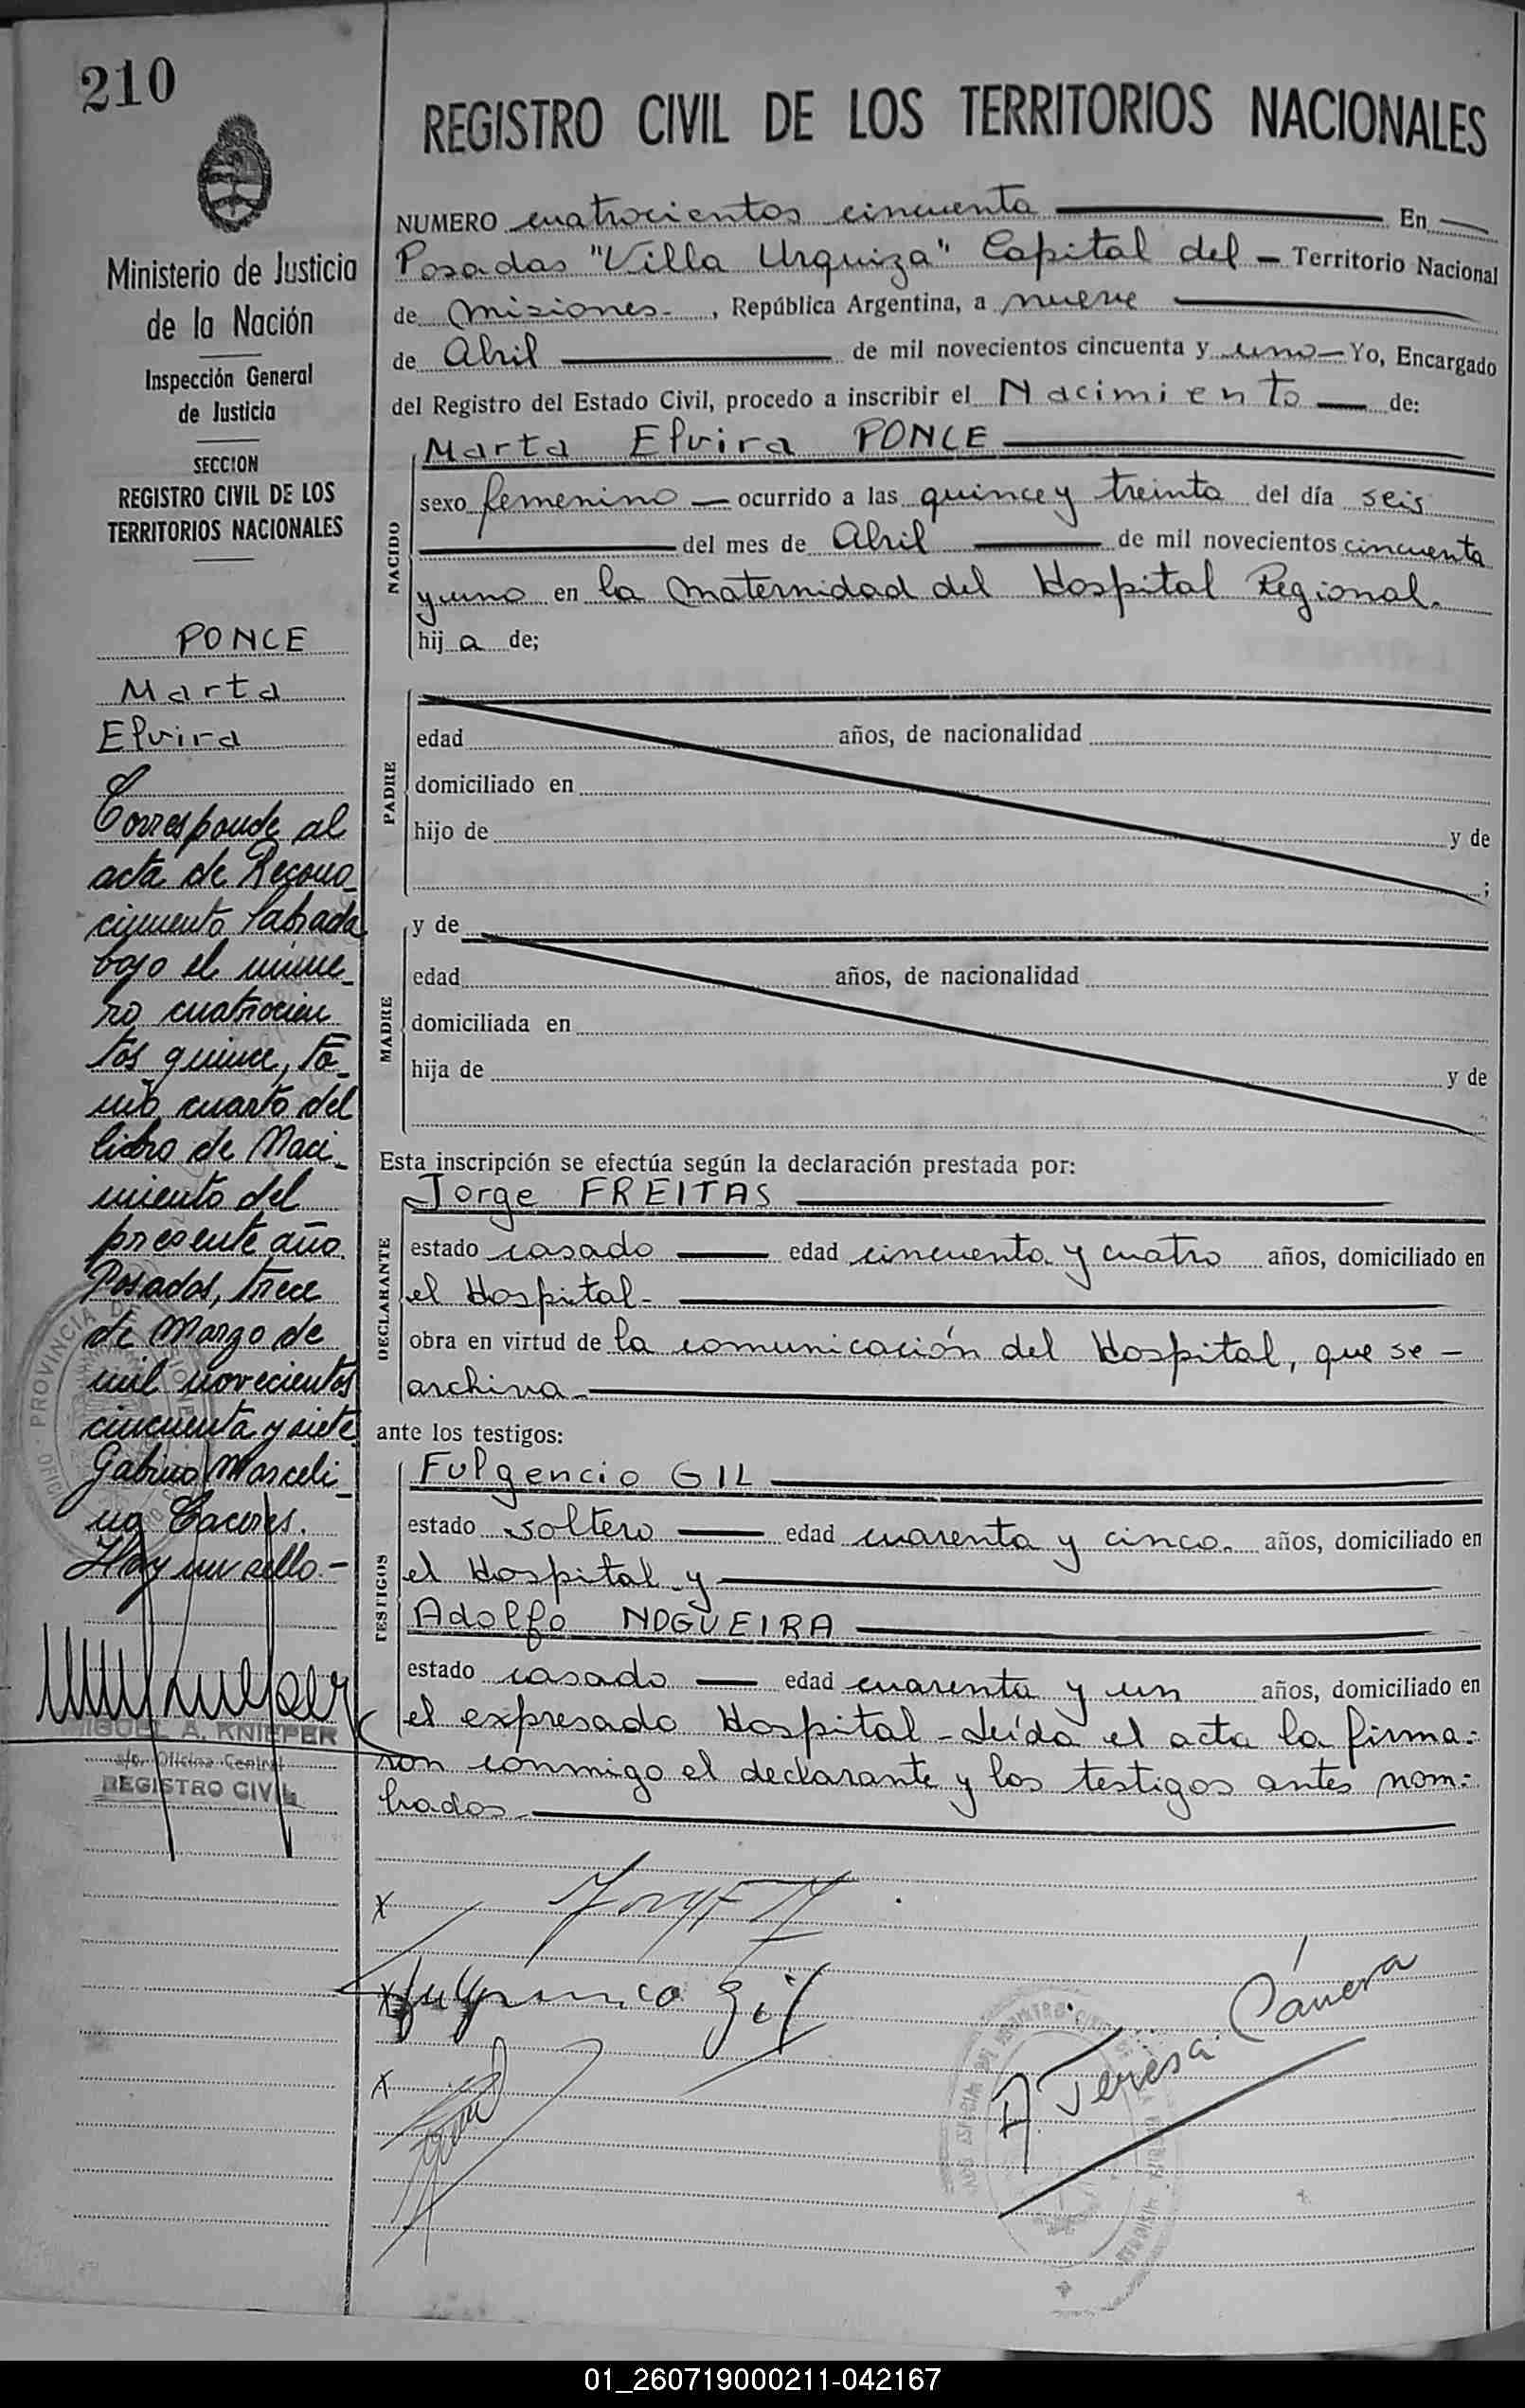 210
Ministerio de Justicia
de la Nación
Inspección General
de Justicia
SECCION
REGISTRO CIVIL DE LOS
TERRITORIOS NACIONALES
PONCE
Marta
Elvira
Corresponde al
acta de Recono_
cimiento labrada
bajo el núme_
ro cuatrocien
tos quince, to_
mo cuarto del
libro de Naci_
miento del
presente año.
Posadas, trece
de Marzo de
mil novecientos
cincuenta y siete
Gabino Marceli_
no Caceres.
Hay un sello.-
MIGUEL A. KNIEPPER
a/c. Oficina Central
REGISTRO CIVIL
REGISTRO CIVIL DE LOS TERRITORIOS NACIONALES
NUMERO cuatrocientos cincuenta En
Posadas "Villa Urquiza" Capital del - Territorio Nacional
de Misiones- , República Argentina, a nueve
de Abril de mil novecientos cincuenta y uno - Yo, Encargado
del Registro del Estado Civil, procedo a inscribir el Nacimiento de:
NACIDO
Marta Elvira PONCE
sexo femenino - ocurrido a las quince y treinta del día seis
del mes de Abril de mil novecientos cincuenta
y uno en la Maternidad del Hospital Regional.
hij a de;
PADRE
edad años, de nacionalidad
domiciliado en
hijo de y de
;
MADRE
y de
edad años, de nacionalidad
domiciliada en
hija de y de
Esta inscripción se efectúa según la declaración prestada por:
DECLARANTE
Jorge FREITAS
estado casado edad cincuenta y cuatro años, domiciliado en
el Hospital-
obra en virtud de la comunicación del Hospital, que se -
archiva-
ante los testigos:
TESTIGOS
Fulgencio GIL
estado soltero edad cuarenta y cinco. años, domiciliado en
el Hospital y
Adolfo NOGUEIRA
estado casado edad cuarenta y un años, domiciliado en
el expresado Hospital - Leída el acta la firma=
ron conmigo el declarante y los testigos antes nom=
brados-
x
x Fulgencio Gil
x
A. Teresa Cánera
01_260719000211-042167